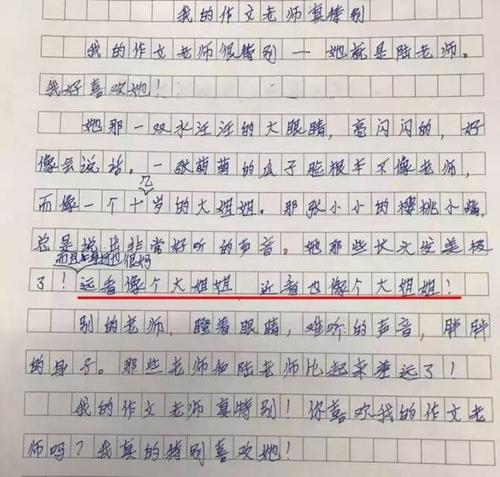 我的作文老师真特别
我的作文老师很特别—她就是陆老师。
我好喜欢她！
她那一双水汪汪的大眼睛，亮闪闪的，好
像会说话。一张萌萌的瓜子脸根本不像老师，
而像一个十几岁的大姐姐。那张小小的樱桃小嘴，
总是说出非常好听的声音。她那些长头发美极
而且身材也很好
了！远看像个大姐姐 近看也像个大姐姐！
别的老师，瞪着眼睛，难听的声音，胖胖
的身子。那些老师和陆老师比起来差远了！
我的作文老师真特别！你喜欢我的作文老
师吗？我真的特别喜欢她！